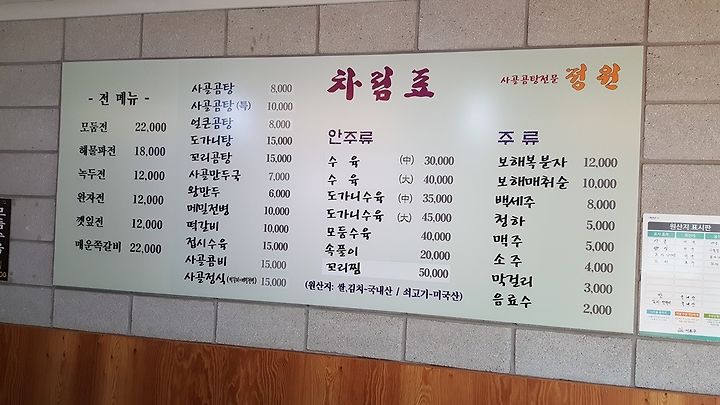 - 전 메뉴 -
모둠전 22,000
해물파전 18,000
녹두전 12,000
완자전 12,000
깻잎전 12,000
매운쪽갈비 22,000
사골곰탕 8,000
사골곰탕(특) 10,000
얼큰곰탕 8,000
도가니탕 15,000
꼬리곰탕 15,000
사골만두국 7,000
왕만두 6,000
메밀전병 10,000
떡갈비 10,000
접시수육 15,000
사골곰비 15,000
사골정식 15,000
차림표
안주류
수 육 (中) 30,000
수 육 (大) 40,000
도가니수육 (中) 35,000
도가니수육 (大) 45,000
모둠수육 40,000
속풀이 20,000
꼬리찜 50,000
(원산지: 쌀,김치-국내산 / 쇠고기-미국산)
사골곰탕전문 정원
주 류
보해복분자 12,000
보해매취순 10,000
백세주 8,000
청하 5,000
맥주 5,000
소주 4,000
막걸리 3,000
음료수 2,000
원산지 표시판